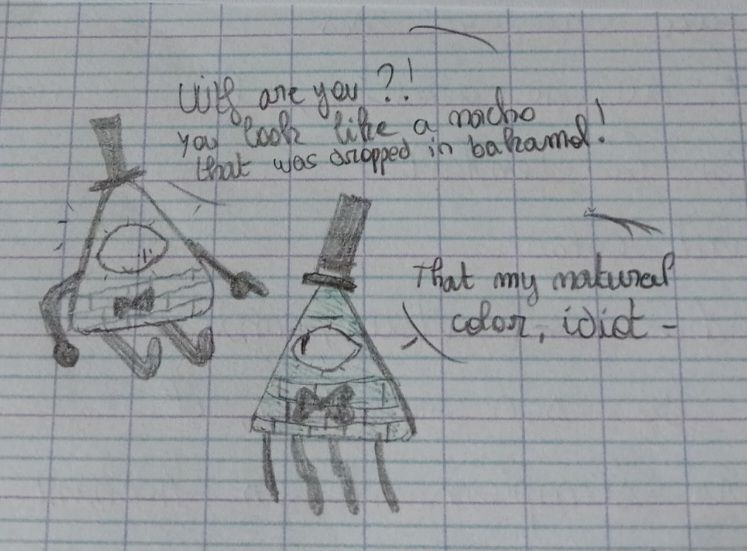 Wtf are you ?!
you look like a nacho
that was dropped in bahamol!
That my natural
color, idiot -